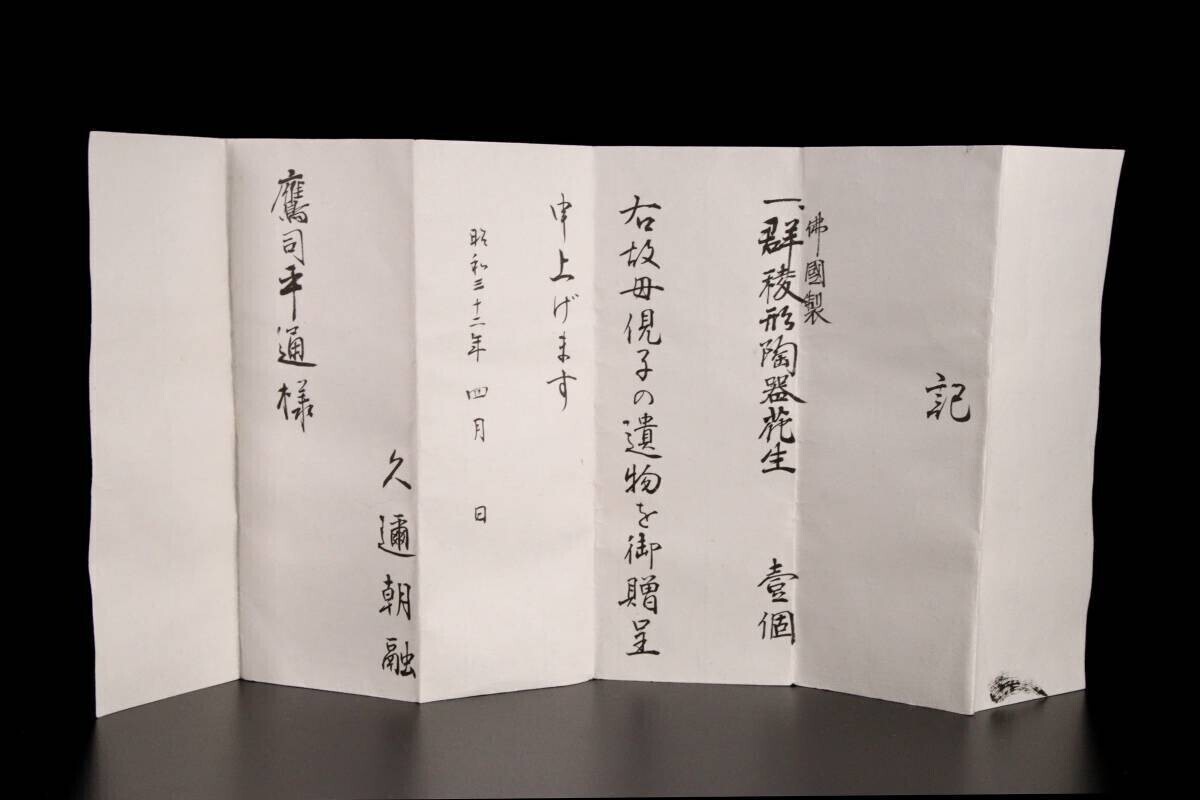 記
佛國製
一、群稜形陶器花生 壹個
右故母俔子の遺物を御贈呈
申上げます
昭和三十二年 四月 日
久邇朝融
鷹司平通様